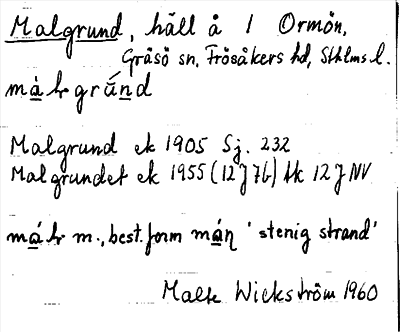 Malgrund, häll å 1 Ormön,
Gräsö sn, Frösåkers hd, Sthlms l.
Malgrund ek 1905 Sj. 232
Malgrundet ek 1955 (12J7b) tk 12J NV
m., best. form 'stenig strand'
Malte Wickström 1960